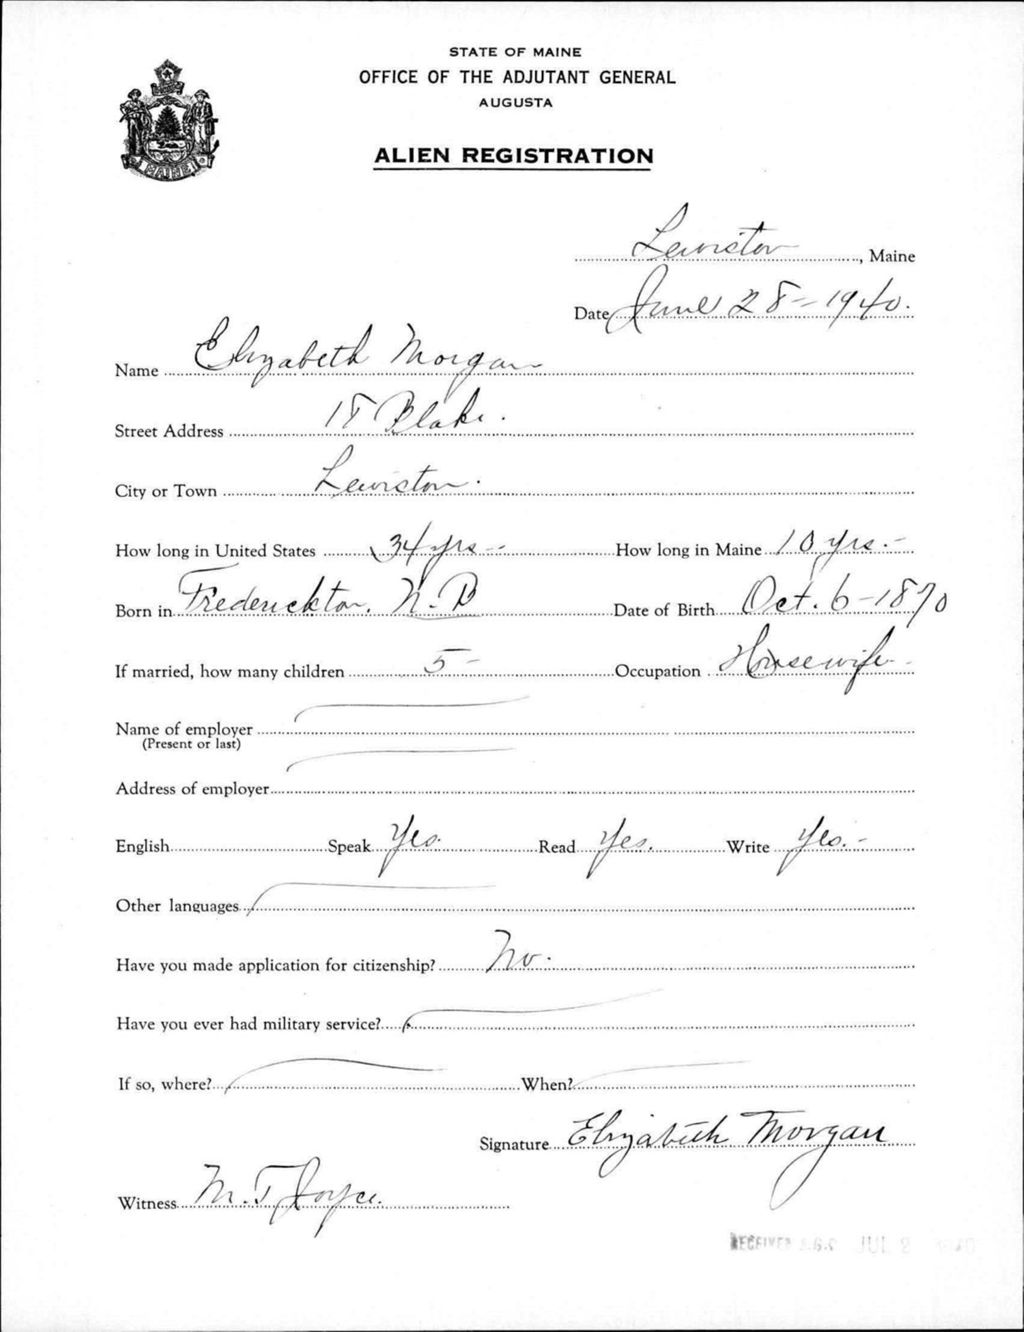 STATE OF MAINE
OFFICE OF THE ADJUTANT GENERAL
AUGUSTA
ALIEN REGISTRATION
MAINE
Lewiston, Maine
Date June 28 - 1940.
Name Elizabeth Morgan
Street Address 18 Blake.
City or Town Lewiston.
How long in United States 34 yrs -- How long in Maine 10 yrs. -
Born in Frederickton, N. B Date of Birth Oct. 6 - 1870
If married, how many children 5 - Occupation Housewife -
Name of employer
(Present or last)
Address of employer
English Speak Yes. Read Yes. Write Yes. -
Other languages
Have you made application for citizenship? No.
Have you ever had military service?
If so, where? When?
Signature Elizabeth Morgan
Witness M. T. Joyce.
RECEIVED A.G.O. JUL 2 1940